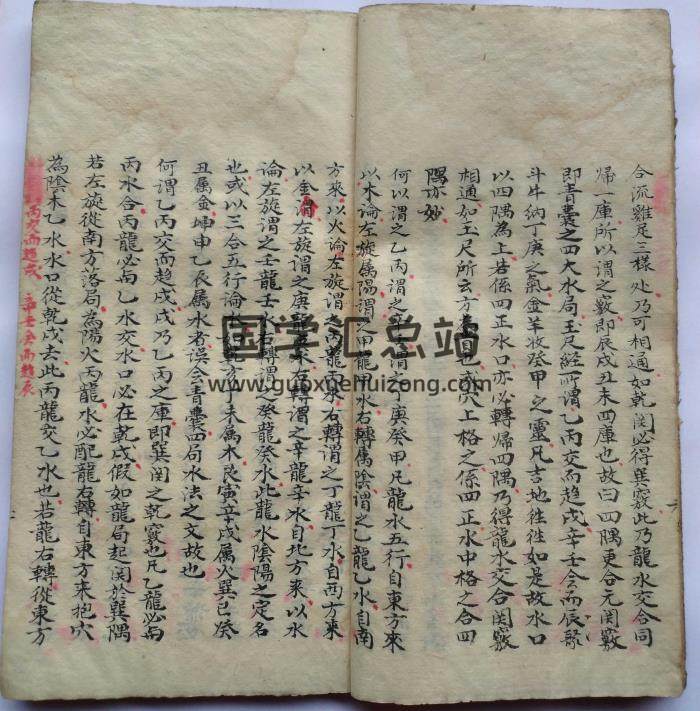 合流雞足三樣处乃可相通如乾関必得巽竅此乃龍水交合同
歸一庫所以謂之竅即辰戌丑未四庫也故曰四隅更合元関竅
即青囊之四大水局玉尺経所謂乙丙交而趋戌辛壬会而辰聚
斗牛納丁庚之氣金羊收癸甲之靈凡吉地徃徃如是故水口
以四隅為上若係四正水口亦必轉歸四隅乃得龍水交合関竅
相通如玉尺所云方為首也或穴上格之係四正水中格之合四
隅亦妙
何以謂之乙丙謂之辛壬謂之丁庚癸甲凡龍水五行自東方來
以木論左旋属陽謂之甲龍水右轉属陰謂之乙龍乙水自南
方來以火論左旋謂之丙龍丙水右轉謂之丁龍丁水自西方來
以金謂左旋謂之庚龍庚水右轉謂之辛龍辛水自北方來以水
論左旋謂之壬龍壬水右轉謂之癸龍癸水此龍水陰陽之定名
也或以三合五行論丁未属木艮寅辛戌属火巽巳癸
丑属金坤申乙辰属水者误会青囊四局水法之文故也
何謂乙丙交而趋戌戌乃乙丙之庫即巽関之乾竅也凡乙龍必与
丙水合丙龍必与乙水交水口必在乾戌假如龍局起関於巽隅
若左旋從南方落局為陽火丙龍水必配龍右轉自東方來抱穴
為陰木乙水水口從乾戌去此丙龍交乙水也若龍右轉從東方
乙丙交而趋戌 辛壬会而聚辰
国学汇总站
www.guoxuehuizong.com